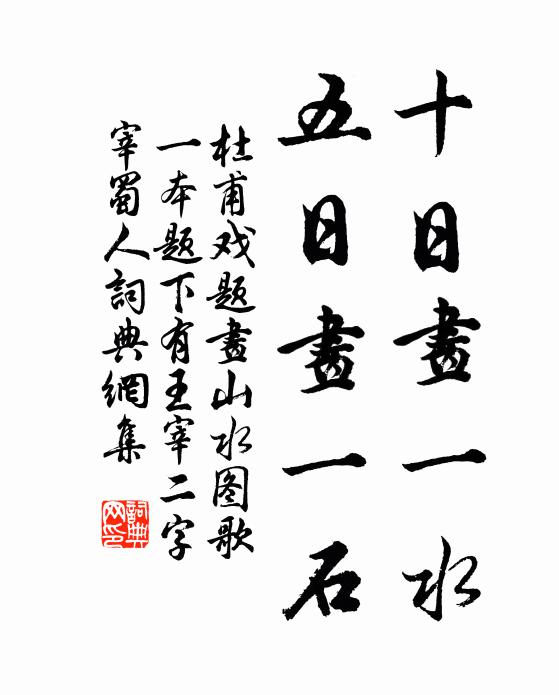 十日畫一水
五日畫一石
杜甫戏题畫山水图歌
一本题下有王宰二字
宰蜀人詞典網集
詞典网印